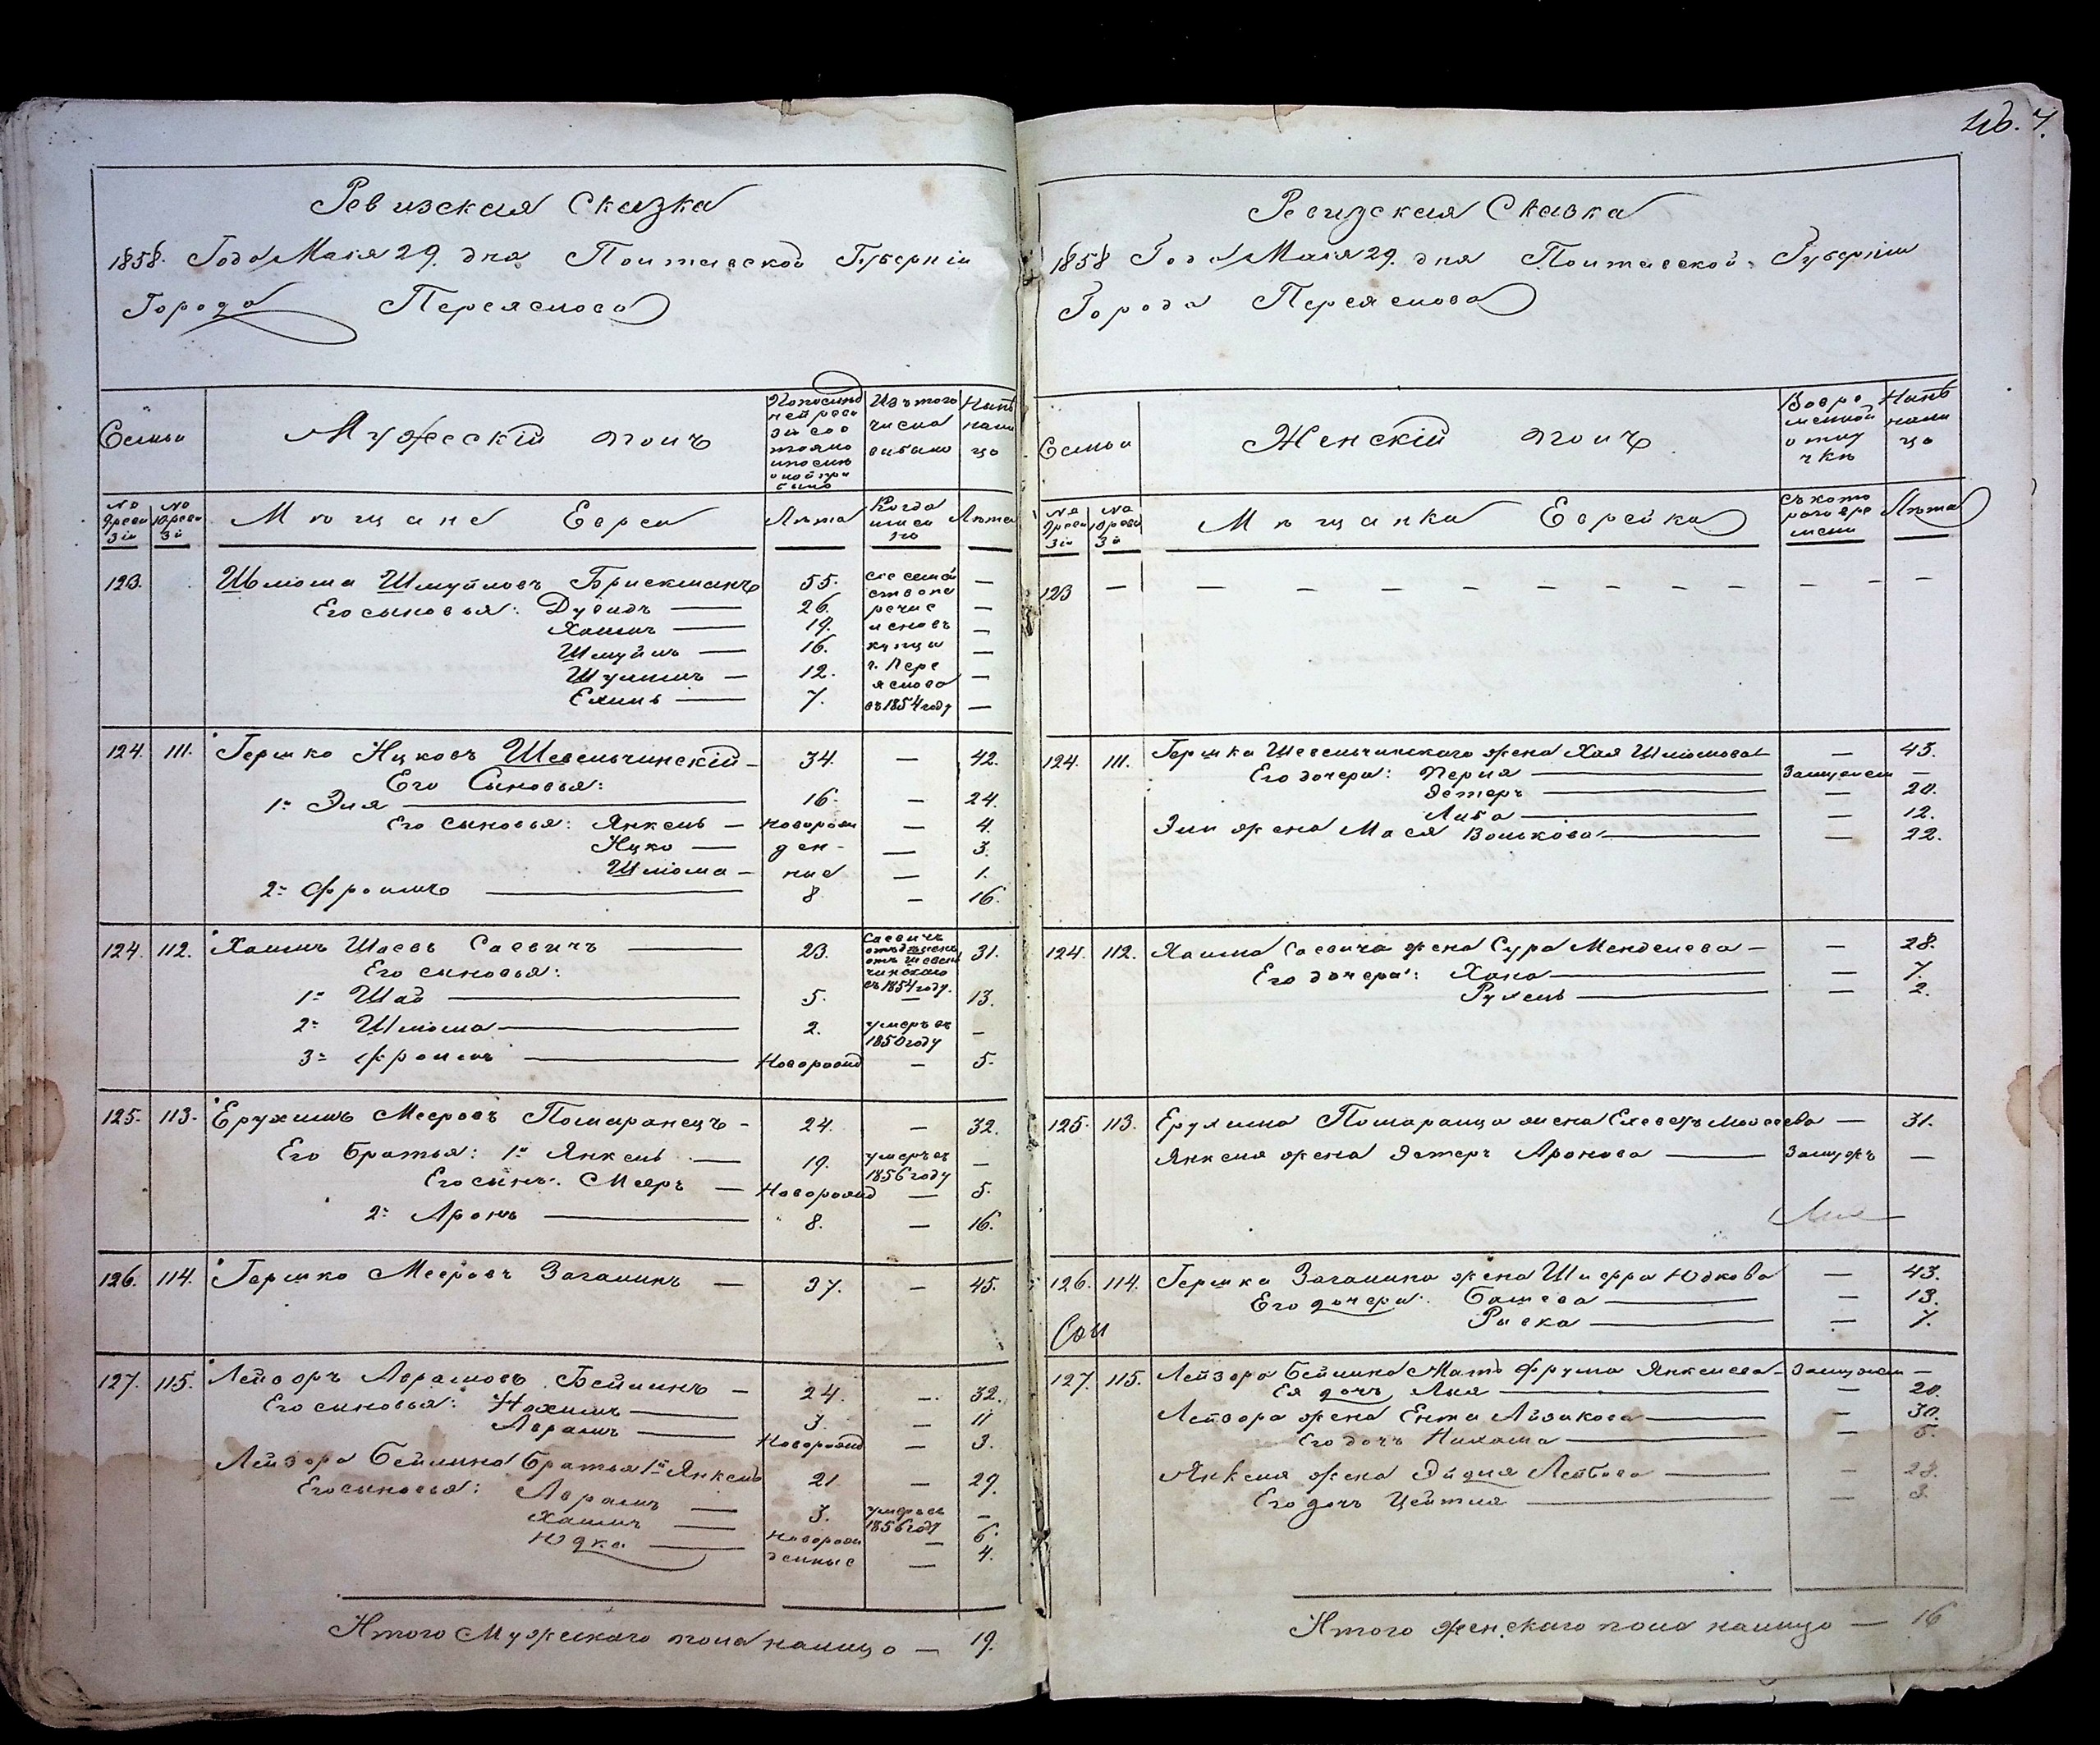 Ревизская Сказка
1858. Года Маія 29. дня Полтавской Губерніи
Города Переяслова
Семьи
Мужескій полъ
По послѣдней ревизіи состояло и послѣ оной прибыло
Изъ того числа выбыло
Нынѣ на лицо
№ 9 ревизіи
№ 10 ревизіи
Мѣщане Евреи
Лѣта
Когда имянно
Лѣта
123. Шлиома Шмуйловъ Брискманъ 55. —
Его сыновья: Дувидъ — 26. —
Хаимъ — 19. —
Шмуйль — 16. —
Шулимъ — 12. —
Ехиль — 7. —
въ 1854 году
124. 111. Гершко Ицковъ Шевельчинскій — 34. — 42.
Его Сыновья:
1й Эля — 16. — 24.
Его сыновья: Янкель — новорож — 4.
Ицко — ден — 3.
Шлиома — ние — 1.
2й Фроимъ — 8 — 16.
124. 112. Хаимъ Шаевъ Саевичъ — 23. Саевичъ отдѣленъ отъ Шевельчинскаго въ 1854 году. 31.
Его сыновья:
1й Шая — 5. — 13.
2й Шлиома — 2. умеръ въ 1850 году —
3й Фроимъ — Новорожд — 5.
125. 113. Ерухимъ Мееровъ Помаранецъ — 24. — 32.
Его Братья: 1й Янкель — 19. умеръ въ 1856 году —
Его сынъ: Мееръ — Новорожд — 5.
2й Аронъ — 8. — 16.
126. 114. Гершко Мееровъ Загалинъ — 37. — 45.
127. 115. Лейзоръ Аврамовъ Бейлинъ — 24. — 32.
Его сыновья: Нохимъ — 3. — 11
Аврамъ — Новорожд — 3.
Лейзора Бейлина братья 1й Янкель 21. — 29.
Его сыновья: Аврамъ — 3. умеръ въ 1856 году —
Хаимъ — новорож — 6.
Юдка — денные — 4.
Итого Мужескаго пола налицо — 19.
7.
Ревизская Сказка
1858 Года Маія 29. дня Полтавской Губерніи
Города Переяслова
Семьи
Женскій полъ
Во временной отлучкѣ
Нынѣ налицо
№ 9 ревизіи
№ 10 ревизіи
Мѣщанка Еврейка
Съ котораго времени
Лѣта
123 — — — — — — — — — — — —
124. 111. Гершка Шевельчинскаго жена Хая Шлиомова — 43.
Его дочери: Перля — Замужем —
Эстеръ — — 20.
Либа — — 12.
Эли жена Мася Волькова — — 22.
124. 112. Хаима Саевича жена Сура Менделева — — 28.
Его дочери: Хана — — 7.
Рухель — — 2.
125. 113. Ерухима Помаранца жена Мовсеева — 31.
Янкеля жена Эстеръ Аронова — Замужъ —
126. 114. Гершка Загалина жена Шифра Юдкова — 43.
Его дочери: Башева — — 13.
Риска — — 7.
127. 115. Лейзора Бейлина Мать Фрума Янкелева — Замужем —
Ея дочь Лия — — 20.
Лейзора жена Ента Айзикова — — 30.
Его дочь Нихама — — 5.
Янкеля жена Эйдля Лейбова — — 23.
Его дочь Цейтля — — 3.
Итого женскаго пола налицо — 16